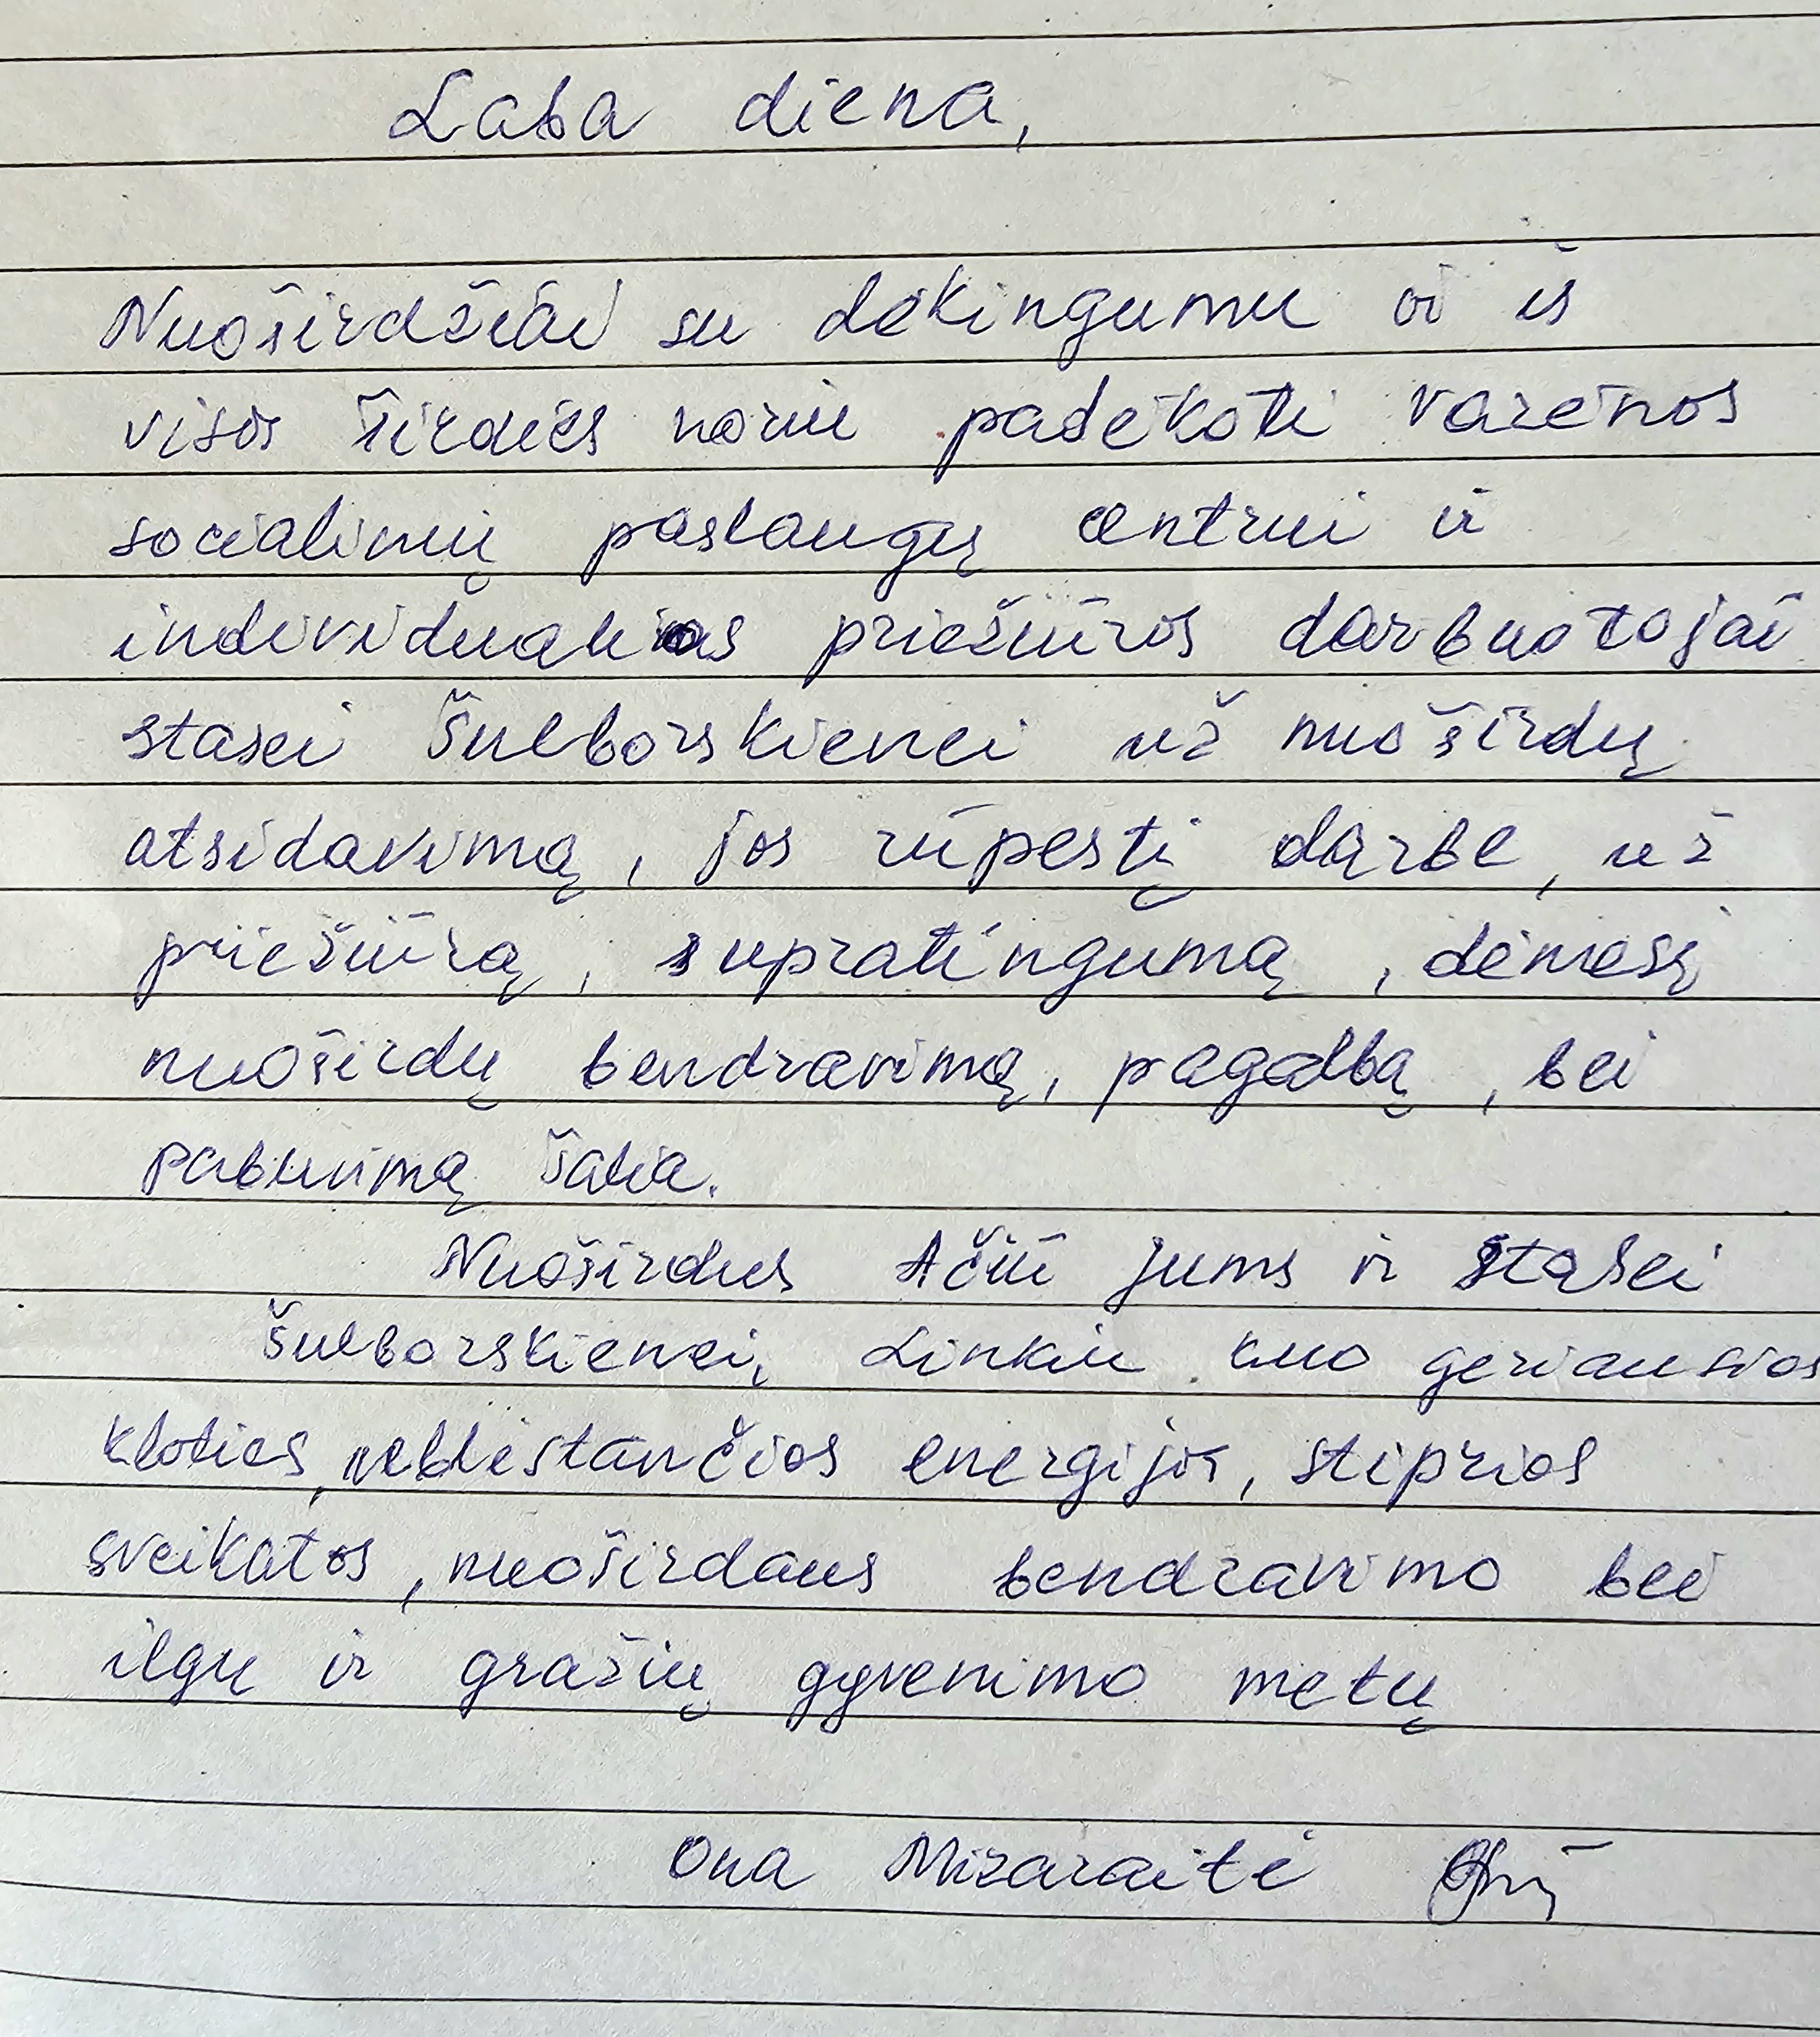 Laba diena,
Nuoširdžiai su dėkingumu ir iš
visos širdies noriu padėkoti varėnos
socialinių paslaugų centrui ir
individualios priežiūros darbuotojai
stasei Šulborskienei už nuoširdų
atsidavimą, jos rūpestį darbe, už
priežiūrą, supratingumą, dėmesį
nuoširdų bendravimą, pagalbą, bei
pabuvimą šalia.
Nuoširdus Ačiū jums ir Stasei
Šulborskienei, Linkiu kuo geriausios
kloties, neblėstančios energijos, stiprios
sveikatos, nuoširdaus bendravimo bei
ilgų ir gražių gyvenimo metų
Ona Mizaraitė